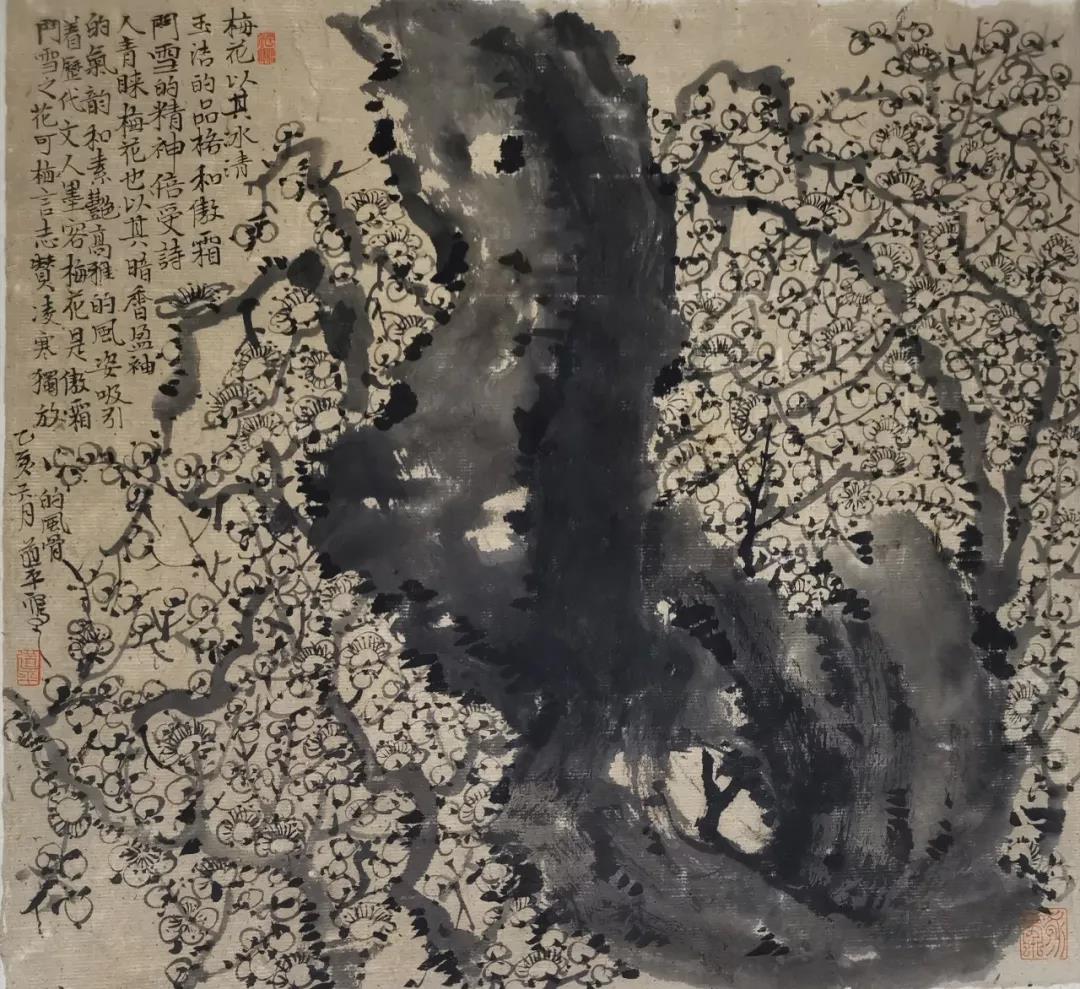 梅花以其冰清
玉洁的品格和傲霜
鬥雪的精神倍受詩
人青睐梅花也以其暗香盈袖
的氣韵和素艷高雅的風姿吸引
着歷代文人墨客梅花是傲霜
鬥雪之花可梅言志贊凌寒獨放
的風骨
乙亥 月 道平寫
道平